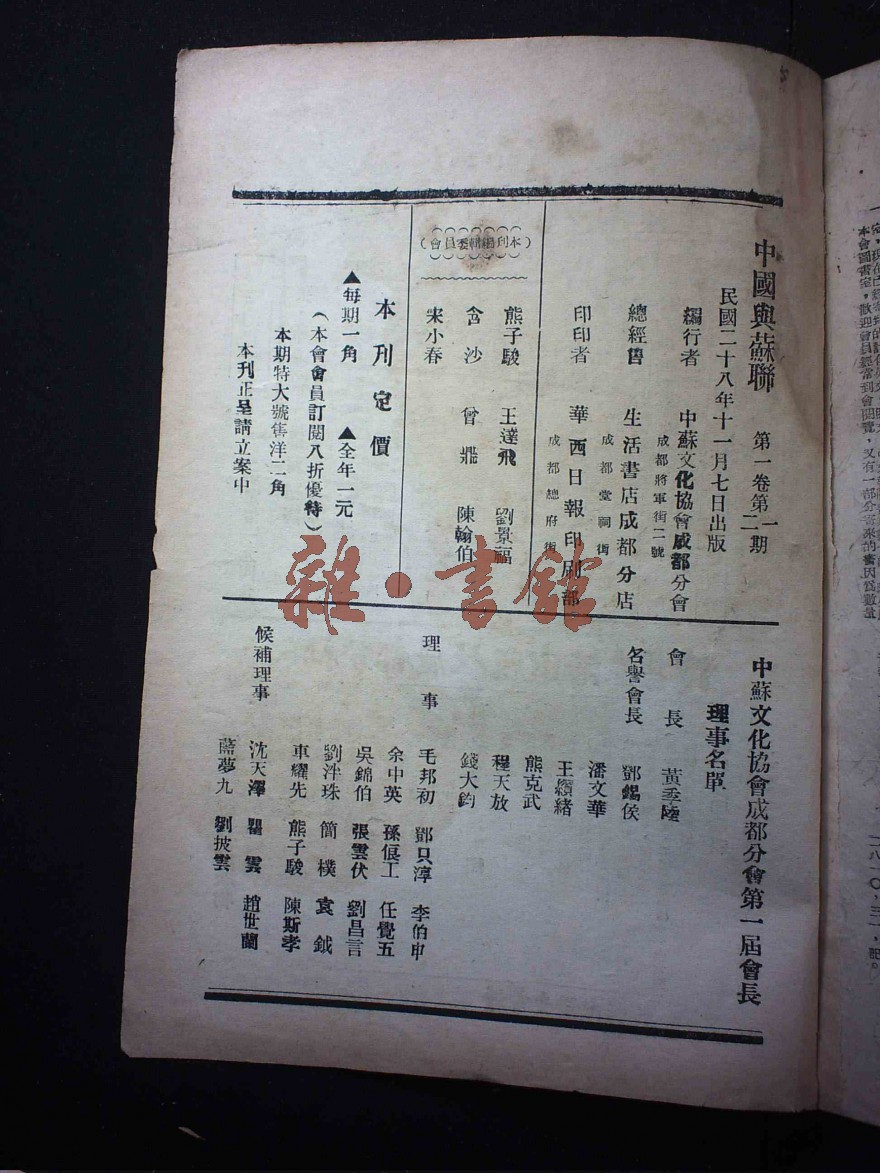 中國與蘇聯
第一卷第一二期
民國二十八年十一月七日出版
編行者 中蘇文化協會成都分會
成都將軍街二號
總經售 生活書店成都分店
成都堂祠街
印印者 華西日報印刷部
成都總府街
(本刊編輯委員會)
熊子駿 王達飛 劉景福
含沙 曾鼎 陳翰伯
宋小春
本刊定價
▲每期一角 ▲全年一元
(本會會員訂閱八折優待)
本期特大號售洋二角
本刊正呈請立案中
中蘇文化協會成都分會第一屆會長
理事名單
會長 黃季陸
名譽會長 鄧錫侯
潘文華
王纘緒
熊克武
程天放
錢大鈞
理事 毛邦初 鄧只淳 李伯申
余中英 孫倀工 任覺五
吳錦伯 張雲伏 劉昌言
劉泮珠 簡樸 袁鉞
車耀先 熊子駿 陳斯孝
候補理事 沈天澤 瞿雲 趙世蘭
蕭夢九 劉披雲
雜·書館
本會圖書室,歡迎會員經常到會閱覽,又有一部分寄來的書因爲數量